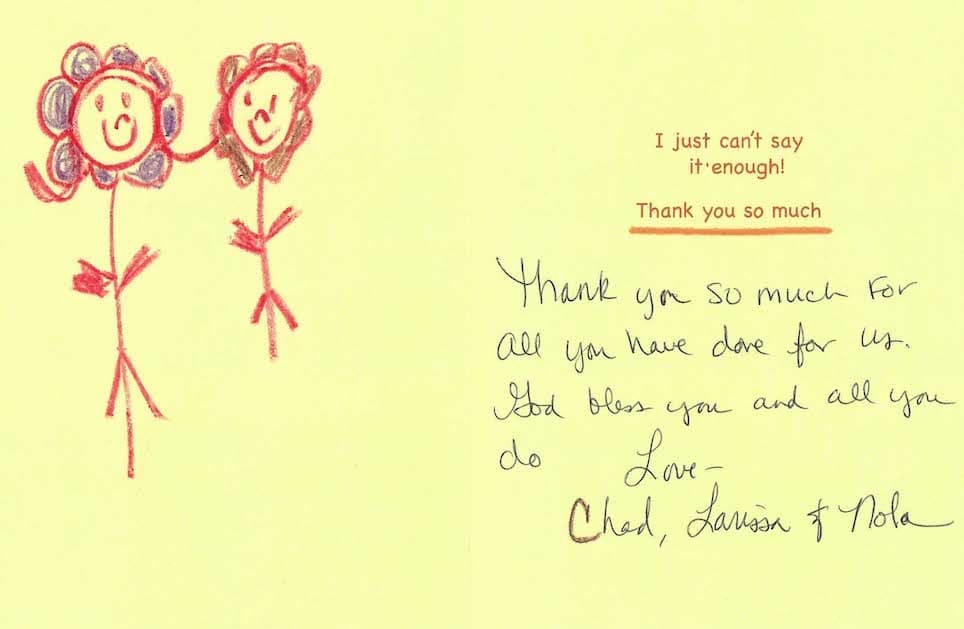 I just can't say
it·enough!
Thank you so much
Thank you so much For
all you have done for us.
God bless you and all you
do Love-
Chad, Larissa & Nola